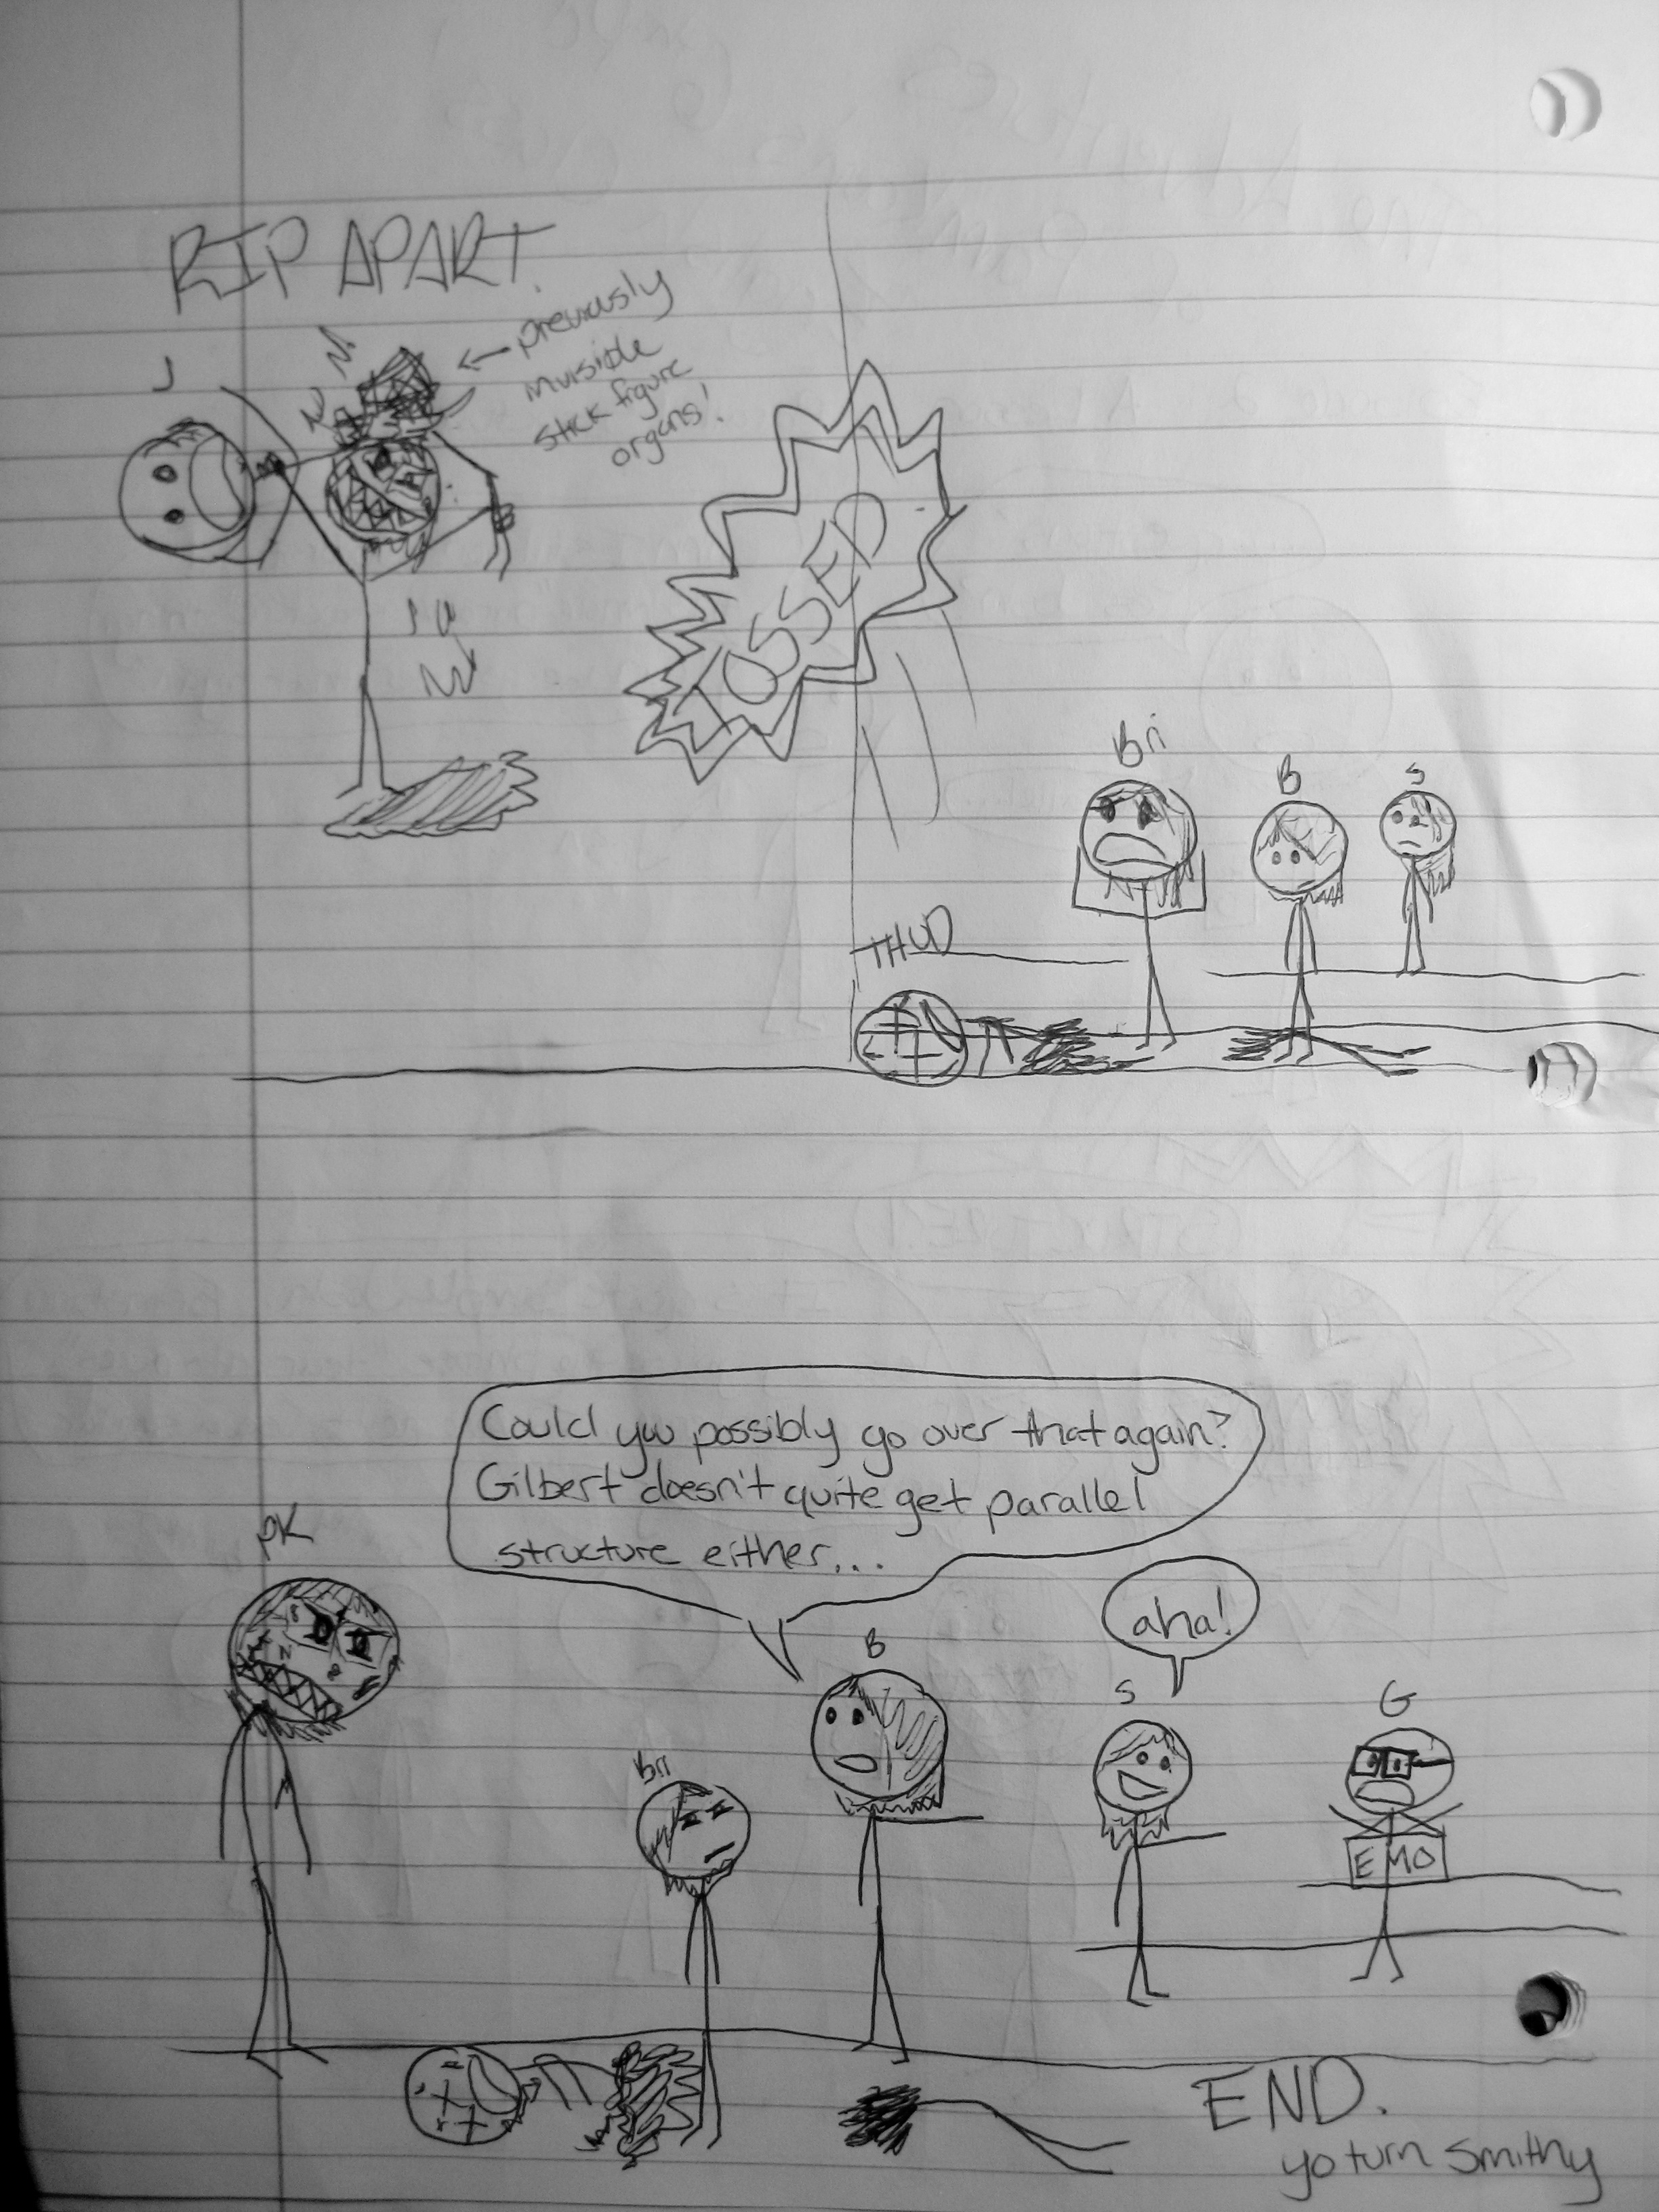 RIP APART.
J
← previously
invisible
stick figure
organs!
TOSSED
Bri
B
S
THUD
Could you possibly go over that again?
Gilbert doesn't quite get parallel
structure either...
PK
aha!
B
S
G
Bri
EMO
END.
yo turn Smithy